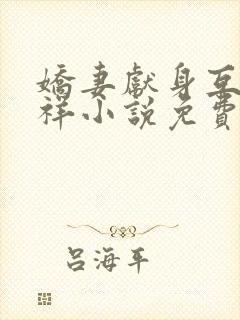 嬌妻獻身互
祥小說免費
呂海平